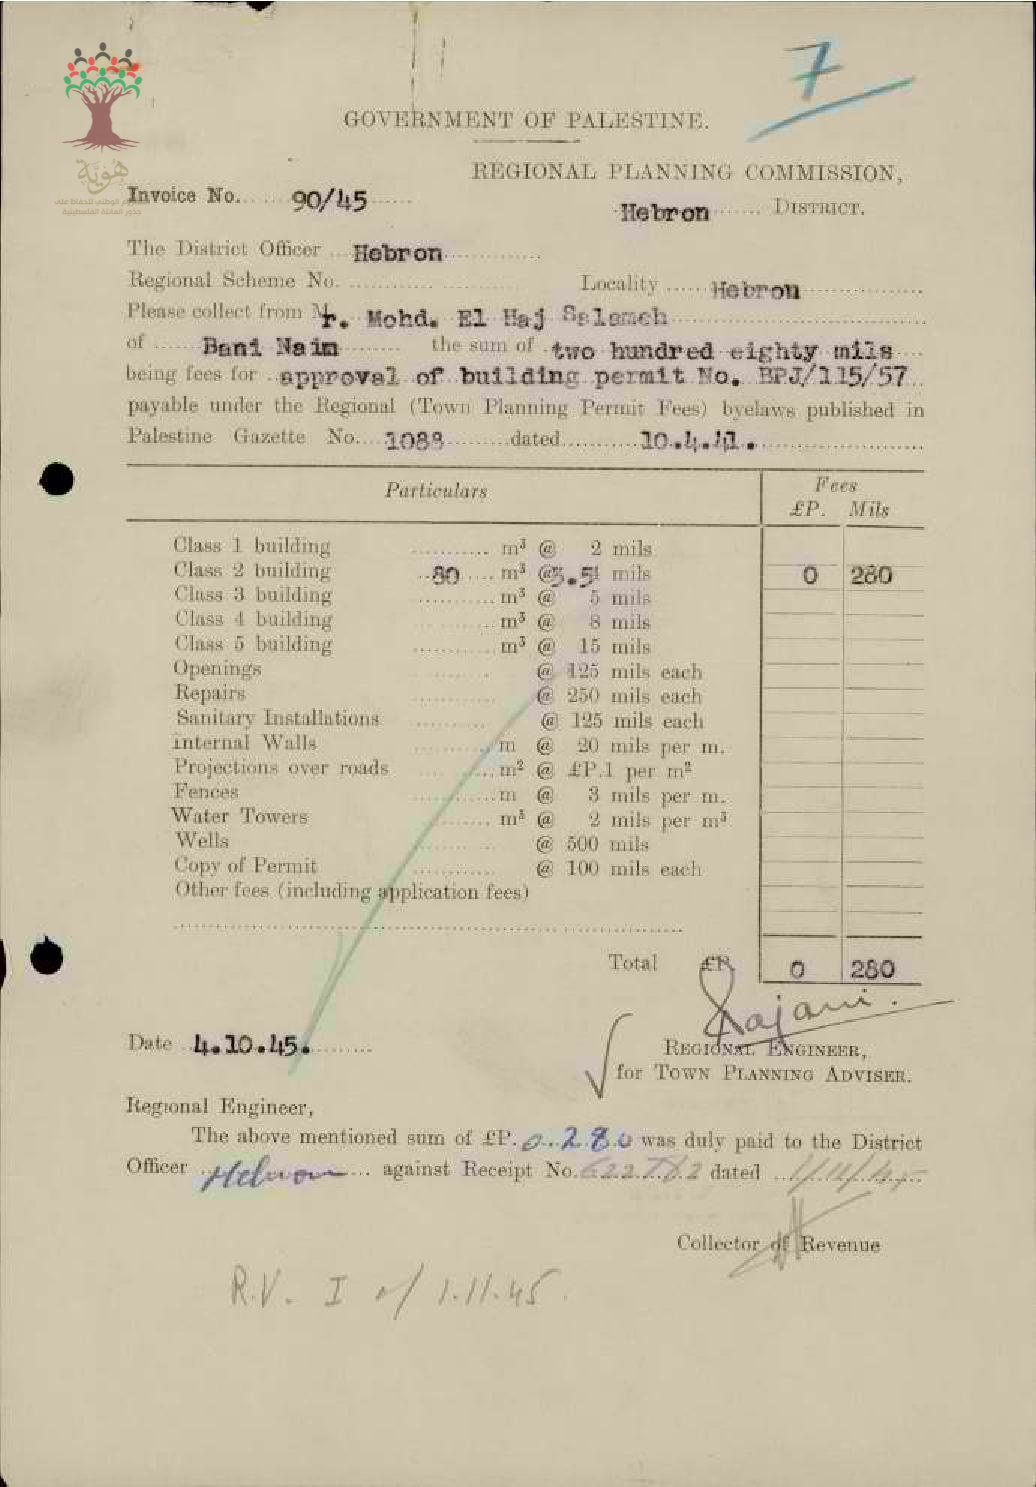 7
GOVERNMENT OF PALESTINE.
هُوِيَّة
REGIONAL PLANNING COMMISSION,
Invoice No. 90/45
Hebron DISTRICT.
جذور العائلة الفلسطينية
The District Officer Hebron
Regional Scheme No. Locality Hebron
Please collect from Mr. Mohd. El Haj Salameh
of Bani Naim the sum of two hundred eighty mils
being fees for approval of building permit No. BPJ/115/57
payable under the Regional (Town Planning Permit Fees) byelaws published in
Palestine Gazette No. 1088 dated 10.4.41.
Particulars Fees
£P. Mils
Class 1 building m³ @ 2 mils
Class 2 building 80 m³ @ 3.5 mils 0 280
Class 3 building m³ @ 5 mils
Class 4 building m³ @ 8 mils
Class 5 building m³ @ 15 mils
Openings @ 125 mils each
Repairs @ 250 mils each
Sanitary Installations @ 125 mils each
Internal Walls m @ 20 mils per m.
Projections over roads m² @ £P.1 per m²
Fences m @ 3 mils per m.
Water Towers m³ @ 2 mils per m³
Wells @ 500 mils
Copy of Permit @ 100 mils each
Other fees (including application fees)
Total £P. 0 280
Date 4.10.45.
REGIONAL ENGINEER,
for TOWN PLANNING ADVISER.
Regional Engineer,
The above mentioned sum of £P. 0.280 was duly paid to the District
Officer Hebron against Receipt No. dated 1/11/45
Collector of Revenue
R.V. I of 1.11.45.